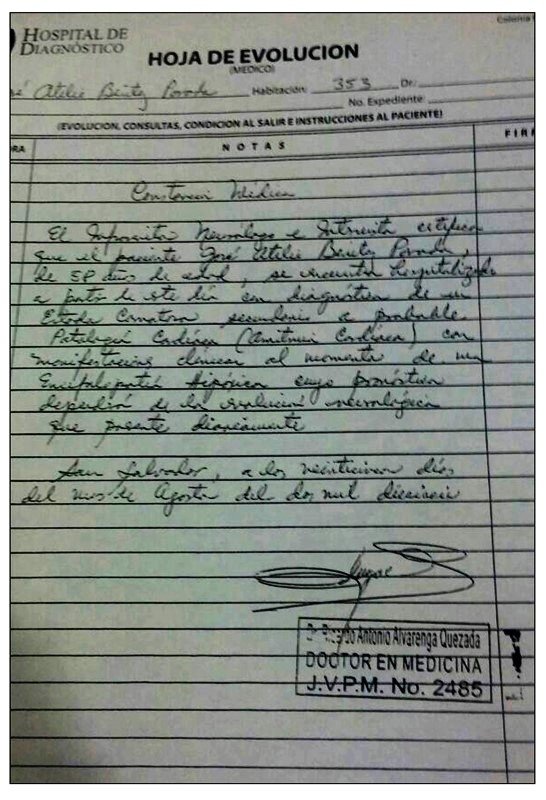 Colonia
HOSPITAL DE
DIAGNÓSTICO
HOJA DE EVOLUCION
(MEDICO)
José Atilio Benítez Parada Habitación: 353 Dr.
No. Expediente:
(EVOLUCION, CONSULTAS, CONDICION AL SALIR E INSTRUCCIONES AL PACIENTE)
NOTAS FIR
Constancia Médica
El Infrascrito Neurólogo e Internista certifica
que el paciente José Atilio Benítez Parada,
de 58 años de edad, se encuentra hospitalizado
a partir de este día con diagnóstico de un
Estado Comatoso secundario a probable
Patología Cardíaca (Cardíaca) con
manifestaciones clínicas al momento de una
Encefalopatía Hipóxica cuyo pronóstico
dependerá de la evolución neurológica
que presente diariamente
San Salvador, a los días
del mes de Agosto del dos mil
Dr. Ricardo Antonio Alvarenga Quezada
DOCTOR EN MEDICINA
J.V.P.M. No. 2485